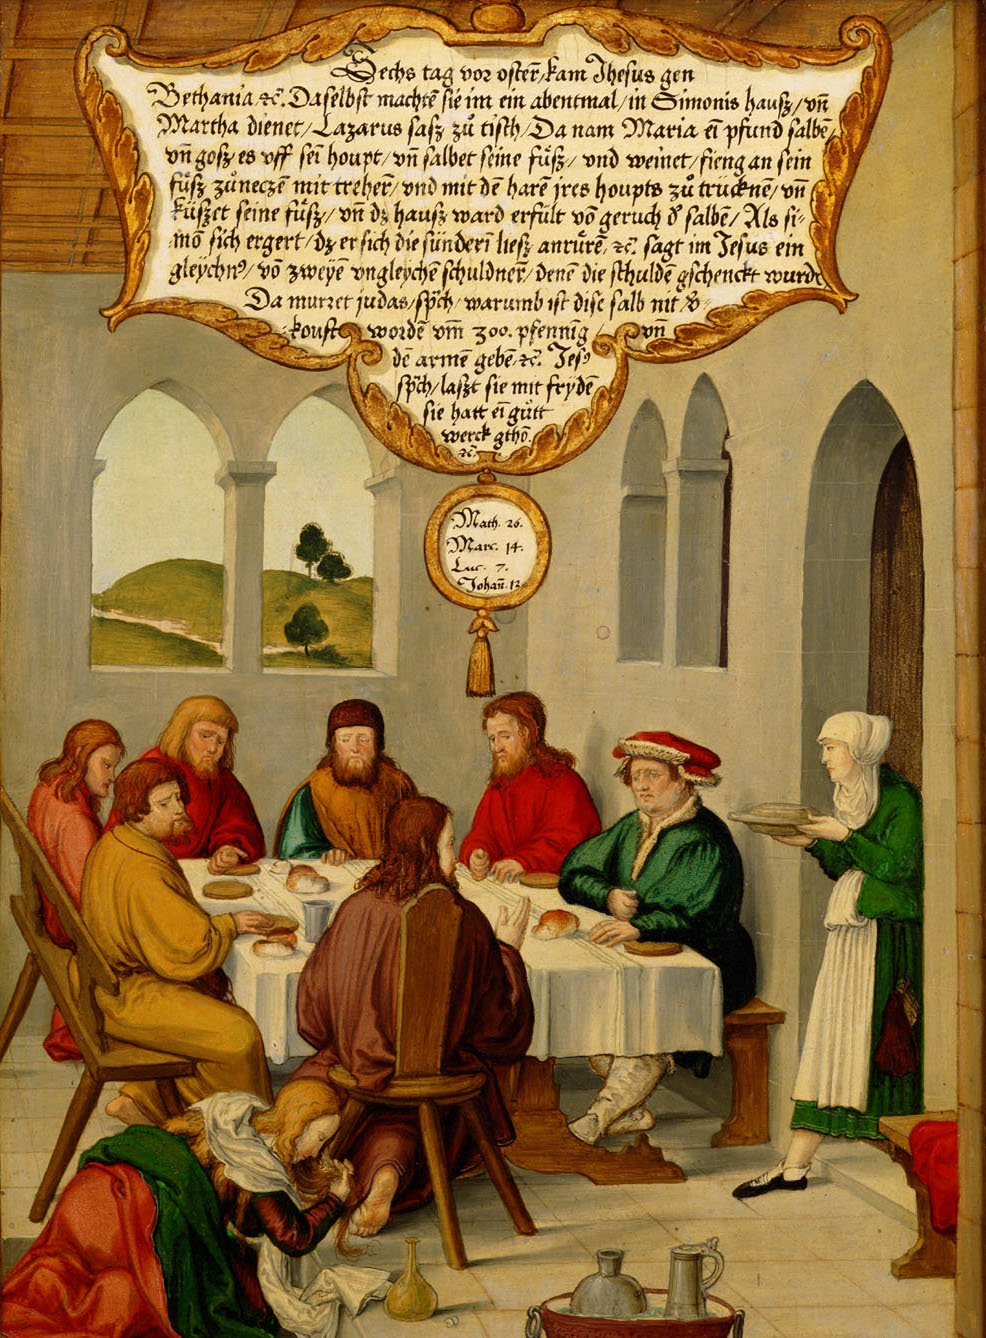 Sechs tag vor osterñ/ kam Jhesus gen
Bethania ⁊c̃. Daselbst machtẽ sie im ein abentmal/ in Simonis hausz/ vñ
Martha dienet/ Lazarus sasz zů tisch/ Da nam Maria eĩ pfund salbẽ/
vñ gosz es vff sein houpt/ vñ salbet seine fůsz/ vnd weinet/ fieng an sein
fůsz zůneczẽ mit treherñ/ vnd mit dẽ harẽ ires houpts zů trücknẽ/ vñ
küszet seine fůsz/ vñ dz hausz ward erfült võ geruch d̕ salbẽ/ Als si-
mõ sich ergert/ dz er sich die sünderĩ liesz anrůrẽ/ ⁊c̃. sagt im Jesus ein
gleÿchnꝰ/ võ zweyẽ vngleychẽ schuldnerñ/ denẽ die schuldẽ gschenckt wurdẽ
Da murret judas/ sp̃ch/ warumb ist dise salb nit v̕-
koufft wordẽ vm̃ 300. pfennig/ vñ
dẽ armẽ gebẽ/ ⁊c̃. Jesꝰ
sp̃ch/ laszt sie mit frydẽ
sie hatt eĩ gůtt
werck gthõ.
⁊c̃.
Math. 26.
Marc. 14.
Luc. 7.
Johañ. 12